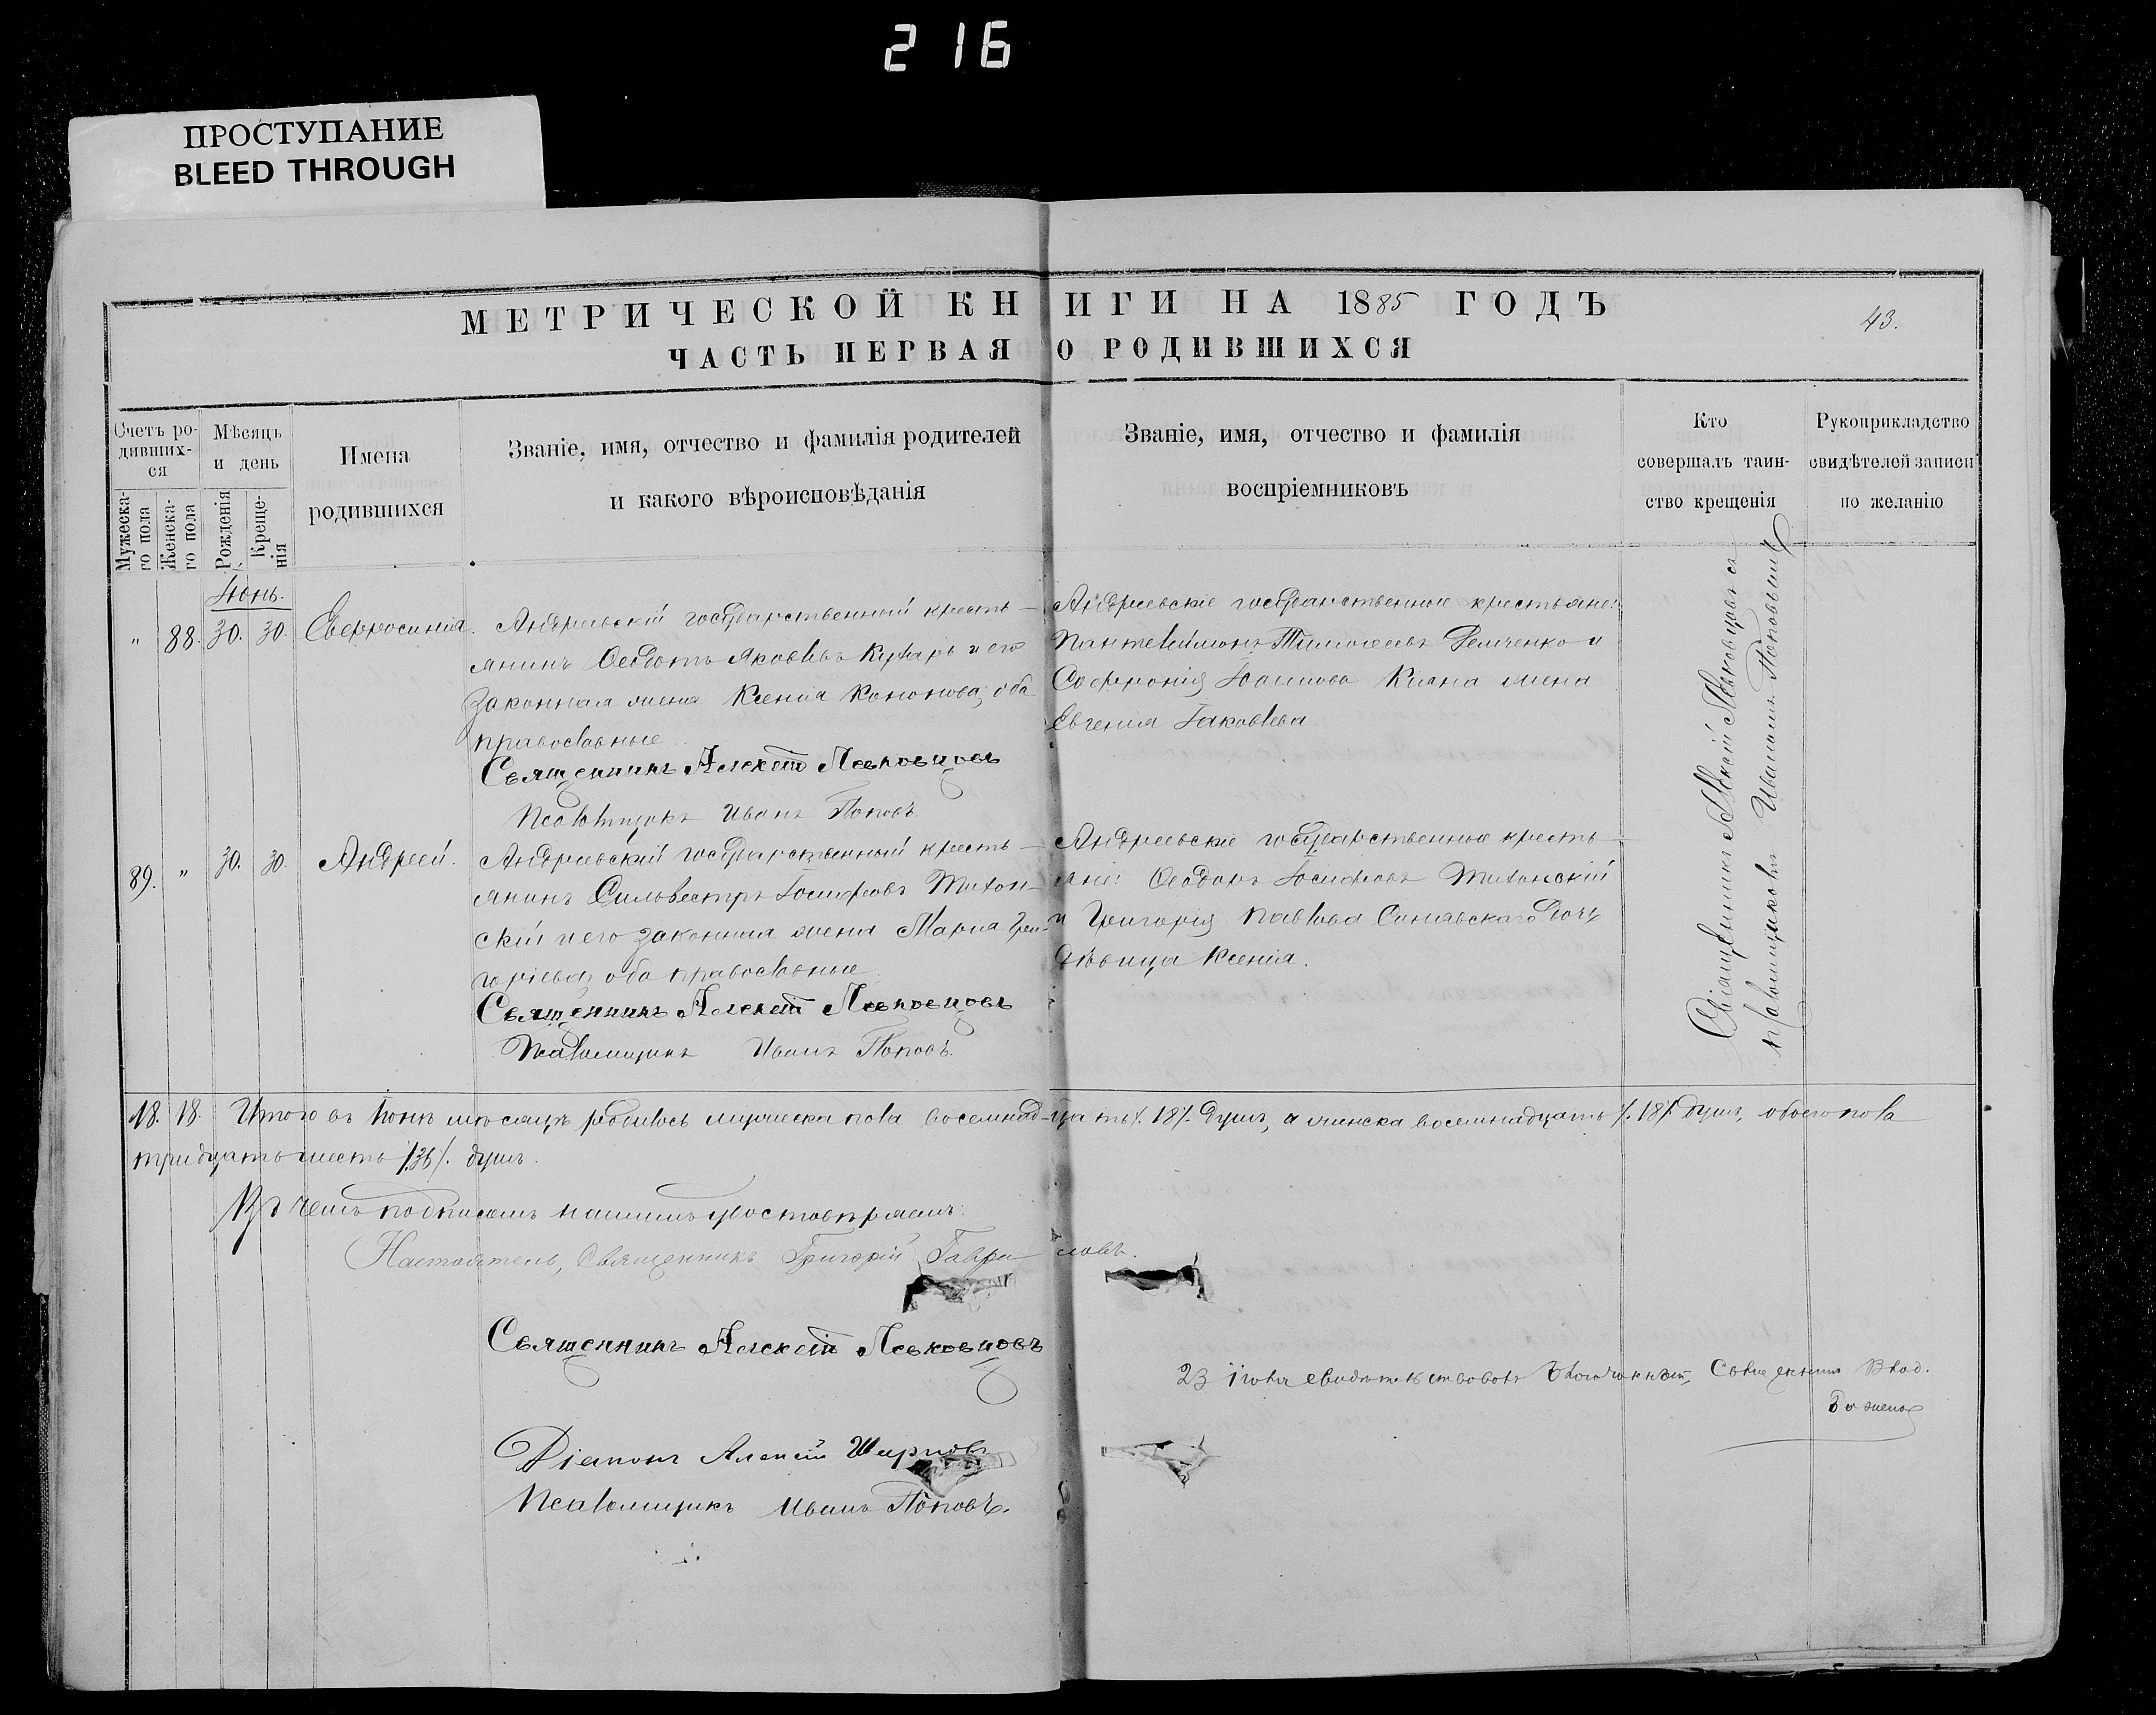 216
ПРОСТУПАНИЕ
BLEED THROUGH
МЕТРИЧЕСКОЙ КНИГИ НА 1885 ГОДЪ
43.
ЧАСТЬ ПЕРВАЯ О РОДИВШИХСЯ
Счетъ ро-
дивших-
ся
Мужеска-
го пола
Женска-
го пола
Мѣсяцъ
и день
Рожденія
Креще-
нія
Имена
родившихся
Званіе, имя, отчество и фамилія родителей
и какого вѣроисповѣданія
Званіе, имя, отчество и фамилія
воспріемниковъ
Кто
совершалъ таин-
ство крещенія
Рукоприкладство
свидѣтелей записи
по желанію
Іюнь.
" 88. 30. 30. Евфросинія.
Андреевскій государственный кресть-
янинъ Ѳеодотъ Яковлевъ Кухарь и его
законная жена Ксенія Кононова; оба
православные
Священникъ Алексѣй Левковцовъ
Псаломщикъ Иванъ Поповъ.
Андреевскіе государственные крестьяне:
Пантелеймонъ Тимоѳеевъ Демченко и
Софронія Іоаннова жена
Евгенія Іаковлева
89. " 30. 30. Андрей.
Андреевскій государственный кресть-
янинъ Сильвестръ Іосифовъ Тихон-
скій и его законная жена Марія Гри-
горіева; оба православные.
Священникъ Алексѣй Левковцовъ
Псаломщикъ Иванъ Поповъ.
Андреевскіе государственные кресть-
яне: Ѳеодоръ Іосифовъ Тихонскій
и Григорія Павлова Синявскаго дочь
дѣвица Ксенія.
Священникъ Алексѣй Левковцовъ съ
псаломщикомъ Иваномъ Поповымъ
18. 18. Итого въ Іюнѣ мѣсяцѣ родилось мужеска пола восемнад-цать /.18/. душъ, а женска восемнадцать /.18/. душъ, обоего пола
тридцать шесть /.36/. душъ.
Въ чемъ подписомъ нашимъ удостовѣряемъ:
Настоятель, Священникъ Григорій Гавриловъ.
Священникъ Алексѣй Левковцовъ
Діаконъ Алексѣй
Псаломщикъ Иванъ Поповъ.
23 іюля свидѣтельствовалъ Благочинный, Священникъ Влад.